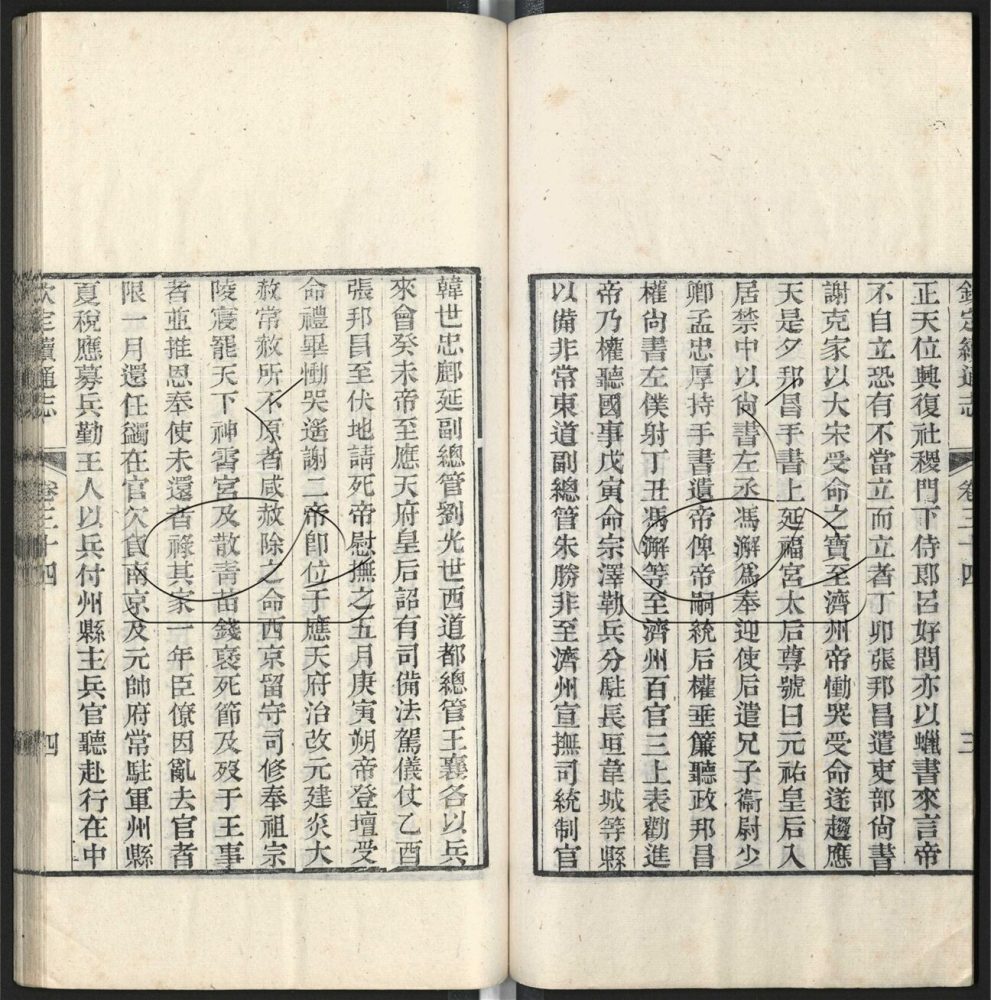 欽定續通志 卷三十四 三
正天位興復社稷門下侍郎呂好問亦以蠟書來言帝
不自立恐有不當立而立者丁卯張邦昌遣吏部尚書
謝克家以大宋受命之寶至濟州帝慟哭受命遂趨應
天是夕邦昌手書上延福宮太后尊號曰元祐皇后入
居禁中以尚書左丞馮澥爲奉迎使后遣兄子衞尉少
卿孟忠厚持手書遺帝俾帝嗣統后權垂簾聽政邦昌
權尚書左僕射丁丑馮澥等至濟州百官三上表勸進
帝乃權聽國事戊寅命宗澤勒兵分駐長垣韋城等縣
以備非常東道副總管朱勝非至濟州宣撫司統制官
韓世忠鄜延副總管劉光世西道都總管王襄各以兵
來會癸未帝至應天府皇后詔有司備法駕儀仗乙酉
張邦昌至伏地請死帝慰撫之五月庚寅朔帝登壇受
命禮畢慟哭遙謝二帝卽位于應天府治改元建炎大
赦常赦所不原者咸赦除之命西京留守司修奉祖宗
陵寢罷天下神霄宮及散靑苗錢褒死節及歿于王事
者並推恩奉使未還者祿其家一年臣僚因亂去官者
限一月還任蠲在官欠負南京及元帥府常駐軍州縣
夏稅應募兵勤王人以兵付州縣主兵官聽赴行在中
欽定續通志 卷三十四 四